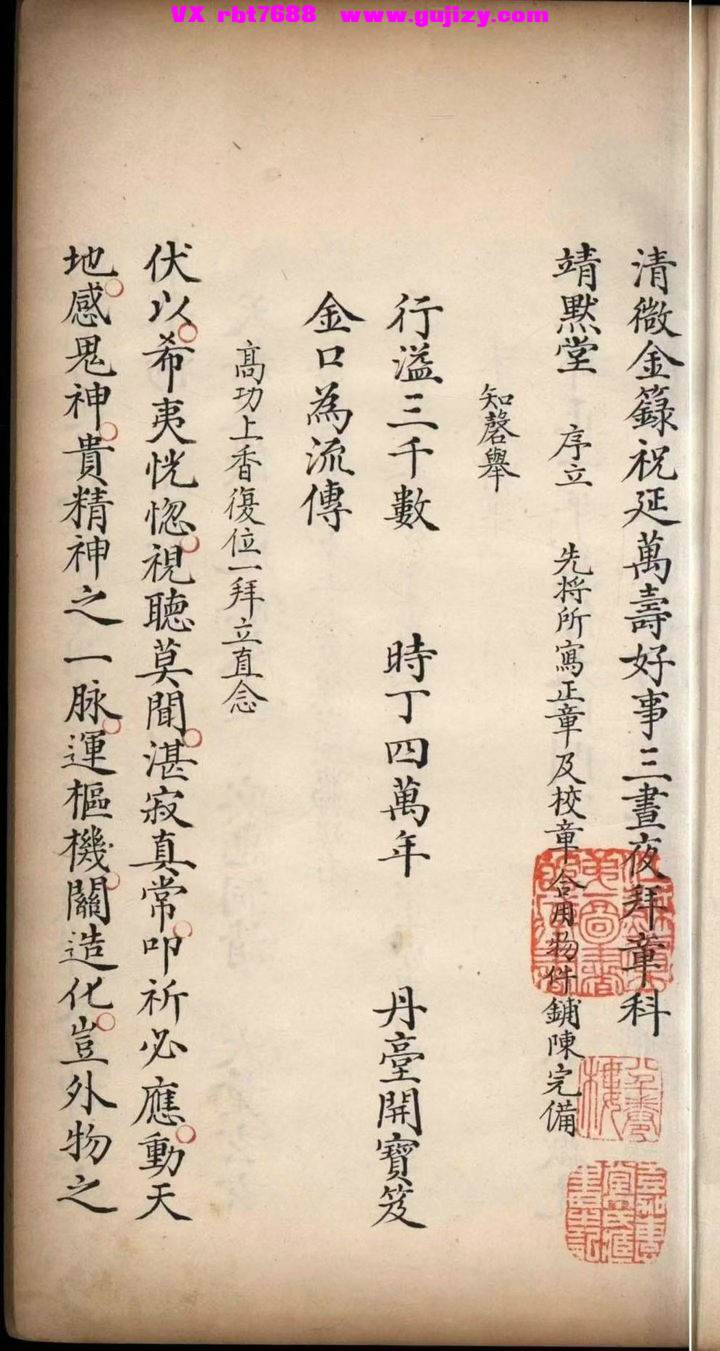 VX rbt7688 www.gujizy.com
清微金籙祝延萬壽好事三晝夜拜章科
靖默堂 序立 先将所寫正章及校章合用物件鋪陳完備
知磬舉
行溢三千數 時丁四萬年 丹臺開寶笈
金口為流傳
高功上香復位一拜立直念
伏以希夷恍惚視聽莫聞湛寂真常叩祈必應動天
地感鬼神貴精神之一脉運樞機關造化豈外物之